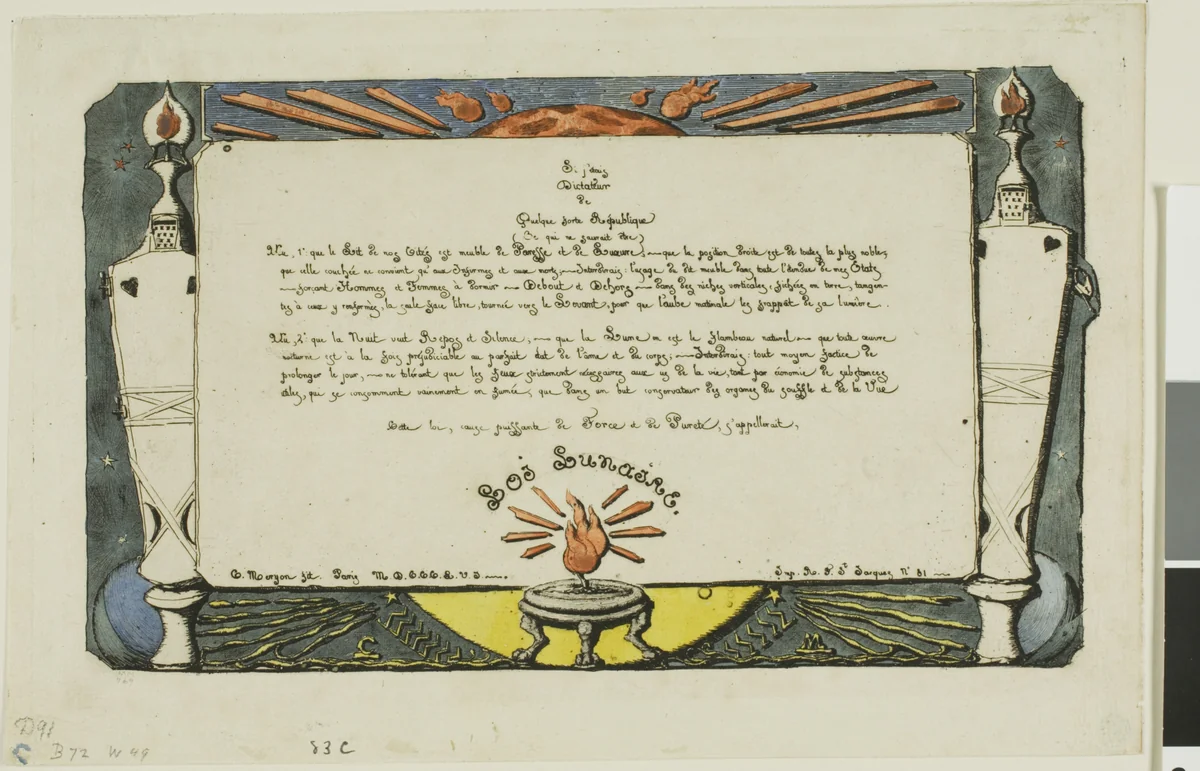 Si j'étais
Dictateur
de
Quelque forte République
(Ce qui ne saurait être)
Vu, 1° que le Lit de nos Cités est meuble de Paresse et de Luxure; que la position droite est de toutes la plus noble,
que celle couchée ne convient qu'aux Infirmes et aux morts; Interdirais: l'usage du dit meuble dans toute l'étendue de mes États
forçant Hommes et Femmes à Dormir Debout et Dehors dans des niches verticales, fichées en terre, tangen-
tes à ceux y renfermés, la seule face libre, tournée vers le Levant, pour que l'aube matinale les frappât de sa lumière.
Vu, 2° que la Nuit veut Repos et Silence; que la Lune m est le flambeau naturel que toute œuvre
nocturne est à la fois préjudiciable au parfait état de l'âme et du corps; Interdirais: tout moyen factice de
prolonger le jour, ne tolérant que les feux strictement nécessaires aux us de la vie, tant par économie de substances
utiles, qui se consomment vainement en fumée, que dans un but conservateur des organes du souffle et de la Vue
Cette loi, cause puissante de Force et de Pureté, s'appellerait,
Loi Lunaire.
C. Meryon fit. Paris M D C C C L V I
Imp. R. N. St Jacques N° 81
C M
D98
C B72 W49
83 C